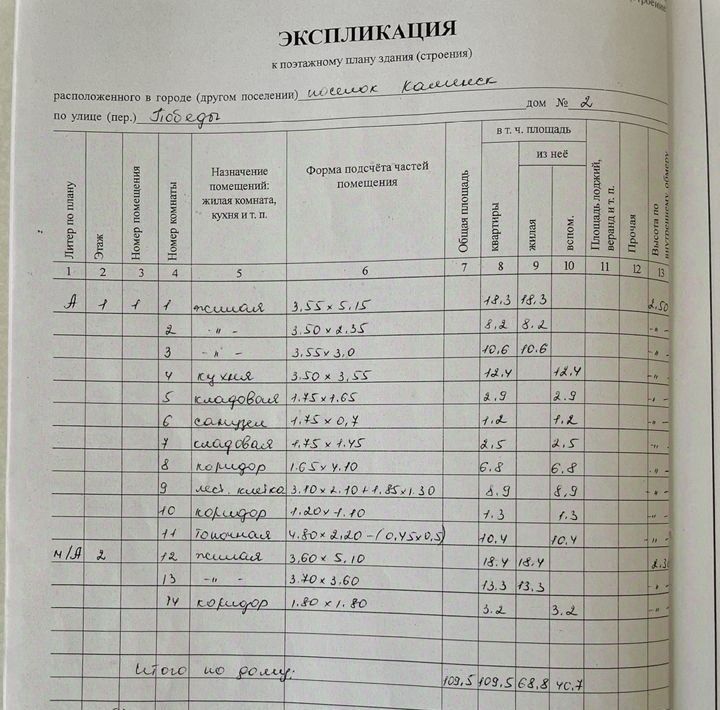 ЭКСПЛИКАЦИЯ
к поэтажному плану здания (строения)
расположенного в городе (другом поселении) поселок Калинск
по улице (пер.) Победы дом № 2
Литер по плану Этаж Номер помещения Номер комнаты Назначение помещений: жилая комната, кухня и т. п. Форма подсчёта частей помещения Общая площадь в т. ч. площадь квартиры из неё жилая вспом. Площадь лоджий, веранд и т. п. Прочая Высота по внутреннему обмеру
1 2 3 4 5 6 7 8 9 10 11 12 13
А 1 1 1 жилая 3.55 × 5.15 18,3 18,3 2,50
2 -"- 3.50 × 2.35 8,2 8,2 -"-
3 -"- 3,55 × 3,0 10,6 10.6 -"-
4 кухня 3.50 × 3,55 12,4 12,4 -"-
5 кладовая 1.75 × 1.65 2.9 2.9 -"-
6 санузел 1,75 × 0,7 1,2 1,2 -"-
7 кладовая 1,75 × 1.45 2,5 2,5 -"-
8 коридор 1.65 × 4.10 6,8 6,8 -"-
9 лест. клетка 3.10 × 2.10 + 1.85 × 1.30 8,9 8,9 -"-
10 коридор 1.20 × 1.10 1.3 1.3 -"-
11 Топочная 4.80 × 2,20 - (0,45 × 0,5) 10,4 10,4 -"-
м/А 2 12 жилая 3,60 × 5,10 18.4 18,4
13 -"- 3.70 × 3.60 13,3 13,3 -"-
14 коридор 1.80 × 1.80 3.2 3,2 -"-
Итого по дому: 109,5 109,5 68,8 40,7